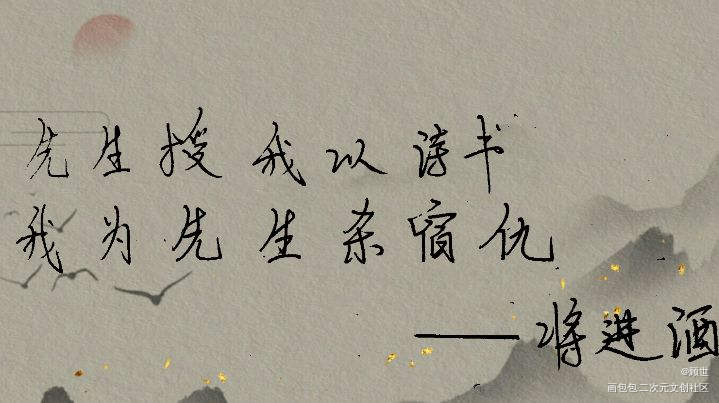 先生授我以诗书
我为先生杀宿仇
——将进酒
@顾世
画包包·二次元文创社区